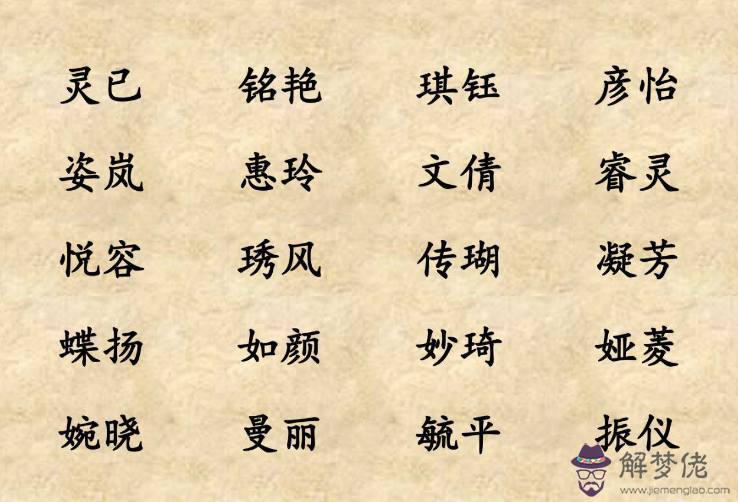 灵已 铭艳 琪钰 彦怡
姿岚 惠玲 文倩 睿灵
悦容 琇风 传瑚 凝芳
蝶扬 如颜 妙琦 娅菱
婉晓 曼丽 毓平 振仪
解梦佬
www.jiemenglao.com